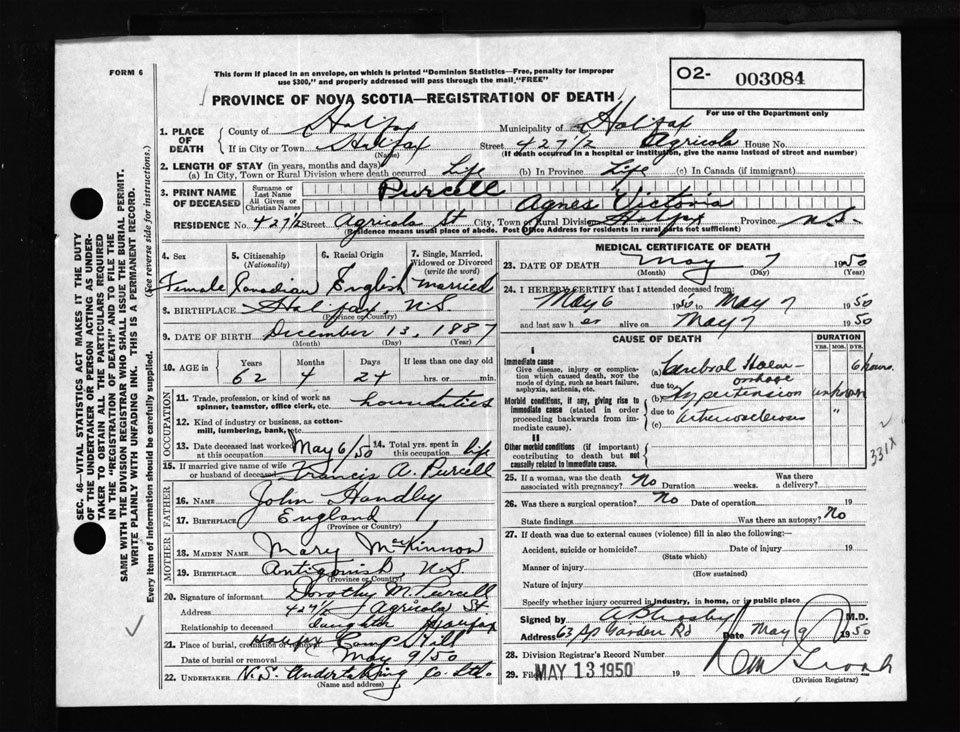 FORM 6
This form if placed in an envelope, on which is printed "Dominion Statistics—Free, penalty for improper
use $300," and properly addressed will pass through the mail "FREE"
O2- 003084
For use of the Department only
PROVINCE OF NOVA SCOTIA—REGISTRATION OF DEATH
1. PLACE OF DEATH
County of Halifax Municipality of Halifax
If in City or Town Halifax Street 427½ Agricola House No.
(Name) (If death occurred in a hospital or institution, give the name instead of street and number)
2. LENGTH OF STAY (in years, months and days)
(a) In City, Town or Rural Division where death occurred Life (b) In Province Life (c) In Canada (if immigrant)
3. PRINT NAME OF DECEASED
Surname or Last Name Purcell
All Given or Christian Names Agnes Victoria
RESIDENCE No. 427½ Street Agricola St City, Town or Rural Division Halifax Province N.S.
(Residence means usual place of abode. Post Office Address for residents in rural parts not sufficient)
4. Sex 5. Citizenship (Nationality) 6. Racial Origin 7. Single, Married, Widowed or Divorced (write the word)
Female Canadian English married
8. BIRTHPLACE Halifax, N.S.
(Province or Country)
9. DATE OF BIRTH December 13, 1887
(Month) (Day) (Year)
10. AGE in Years Months Days If less than one day old
62 4 24 hrs. or min.
OCCUPATION
11. Trade, profession, or kind of work as spinner, teamster, office clerk, etc. house duties
12. Kind of industry or business, as cotton-mill, lumbering, bank, etc.
13. Date deceased last worked at this occupation May 6/50 14. Total yrs. spent in this occupation Life
15. If married give name of wife or husband of deceased Francis A. Purcell
FATHER
16. NAME John Handley
17. BIRTHPLACE England
(Province or Country)
MOTHER
18. MAIDEN NAME Mary MacKinnon
19. BIRTHPLACE Antigonish, N.S.
(Province or Country)
20. Signature of informant Dorothy M. Purcell
Address 427½ Agricola St
Relationship to deceased daughter Halifax
21. Place of burial, cremation or removal Halifax Camp Hill
Date of burial or removal May 9/50
22. UNDERTAKER N.S. Undertaking Co. Ltd.
(Name and address)
MEDICAL CERTIFICATE OF DEATH
23. DATE OF DEATH May 7 1950
(Month) (Day) (Year)
24. I HEREBY CERTIFY that I attended deceased from:
May 6 1950 to May 7 1950
and last saw h er alive on May 7 1950
CAUSE OF DEATH DURATION
YRS. MOS. DYS.
I
Immediate cause
Give disease, injury or complication which caused death, NOT the mode of dying, such as heart failure, asphyxia, asthenia, etc.
(a) Cerebral Haemorrhage 6 hours.
due to
Morbid conditions, if any, giving rise to immediate cause (stated in order proceeding backwards from immediate cause).
(b) Hypertension unknown
due to
(c) arteriosclerosis "
II
Other morbid conditions (if important) contributing to death but not causally related to immediate cause.
331X
25. If a woman, was the death associated with pregnancy? No Duration weeks. Was there a delivery?
26. Was there a surgical operation? No Date of operation 19
State findings Was there an autopsy? No
27. If death was due to external causes (violence) fill in also the following:—
Accident, suicide or homicide? Date of injury 19
(State which)
Manner of injury
(How sustained)
Nature of injury
Specify whether injury occurred in Industry, in home, or in public place
Signed by M.D.
Address 63 Sp Garden Rd Date May 9 1950
28. Division Registrar's Record Number
29. Filed MAY 13 1950 19
(Division Registrar)
SEC. 46—VITAL STATISTICS ACT MAKES IT THE DUTY
OF THE UNDERTAKER OR PERSON ACTING AS UNDER-
TAKER TO OBTAIN ALL THE PARTICULARS REQUIRED
IN THE "REGISTRATION OF DEATH" AND TO FILE THE
SAME WITH THE DIVISION REGISTRAR WHO SHALL ISSUE THE BURIAL PERMIT.
WRITE PLAINLY WITH UNFADING INK. THIS IS A PERMANENT RECORD.
Every item of information should be carefully supplied. (See reverse side for instructions.)